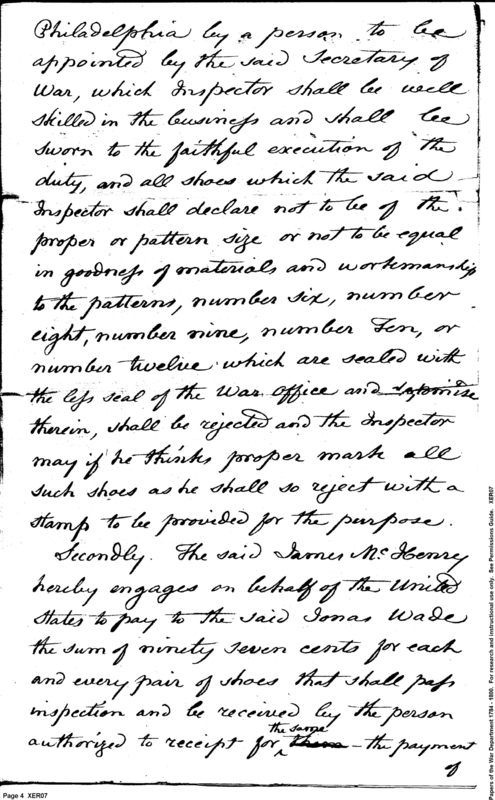 Philadelphia by a person to be
appointed by the said Secretary of
War, which Inspector shall be well
skilled in the business and shall be
sworn to the faithful execution of the
duty, and all shoes which the said
Inspector shall declare not to be of the
proper or pattern size or not to be equal
in goodness of materials and workmanship
to the patterns, number six, number
eight, number nine, number Ten, or
number twelve which are sealed with
the less seal of the War Office and
therein, shall be rejected and the Inspector
may if he thinks proper mark all
such shoes as he shall so reject with a
stamp to be provided for the purpose.
Secondly. The said James McHenry
hereby engages on behalf of the United
States to pay to the said Jonas Wade
the sum of ninety seven cents for each
and every pair of shoes that shall pass
inspection and be received by the person
authorized to receipt for the same them - the payment
of
Page 4 XER07
Papers of the War Department 1784 - 1800. For research and instructional use only. See Permissions Guide. XER07